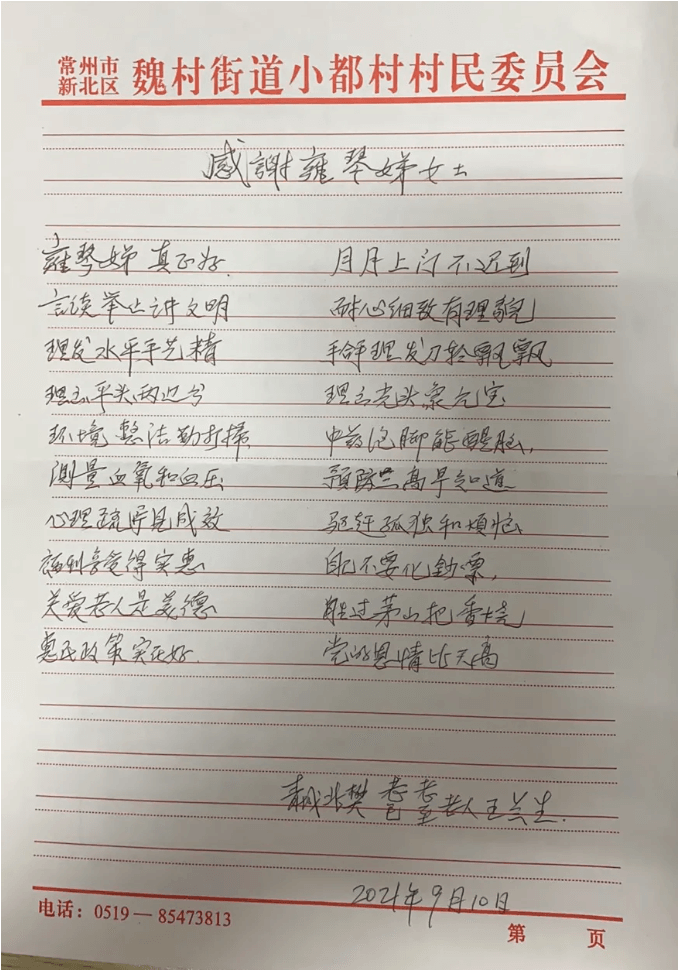 常州市
新北区 魏村街道小都村村民委员会
感謝雍琴娣女士
雍琴娣真正好. 月月上门不迟到
言谈举止讲文明 耐心细致有理貌
理发水平手艺精 手拿理发刀轻飘飘
理个平头两边分 理个光头象元宝
环境整洁勤打掃 中药泡脚能醒脑,
测量血氧和血压 预防三高早知道
心理疏导见成效 驱赶孤独和煩恼
福利享受得实惠 自己不要化鈔票,
关爱老人是美德 胜过茅山把香烧
惠民政策实在好. 党的恩情比天高
青城北樊 耄耋老人王兰生.
2021年9月10日
电话：0519—85473813
第 页